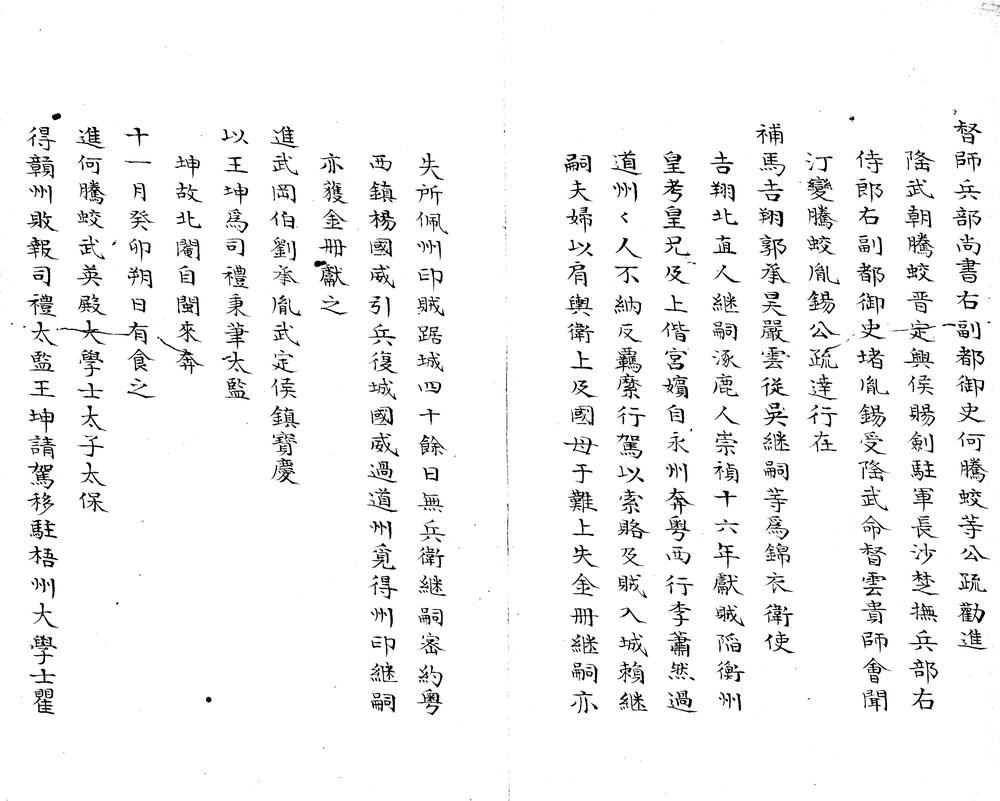 督師兵部尚書右副都御史何騰蛟等公疏勸進
隆武朝騰蛟晉定興侯賜劍駐軍長沙楚撫兵部右
侍郎右副都御史堵胤錫受隆武命督雲貴師會聞
汀變騰蛟胤錫公疏達行在
補馬吉翔郭承昊嚴雲從吳継嗣等為錦衣衛使
吉翔北直人継嗣涿鹿人崇禎十六年獻賊陷衡州
皇考皇兄及上偕宮嬪自永州奔粵西行李蕭然過
道州〻人不納反羈縻行駕以索賂及賊入城賴継
嗣夫婦以肩輿衛上及國母于難上失金冊継嗣亦
失所佩州印賊踞城四十餘日無兵衛継嗣密約粵
西鎮楊國威引兵復城國威過道州覓得州印継嗣
亦獲金冊獻之
進武岡伯劉承胤武定侯鎮寶慶
以王坤為司禮秉筆太監
坤故北閹自閩來奔
十一月癸卯朔日有食之
進何騰蛟武英殿大學士太子太保
得贛州敗報司禮太監王坤請駕移駐梧州大學士瞿